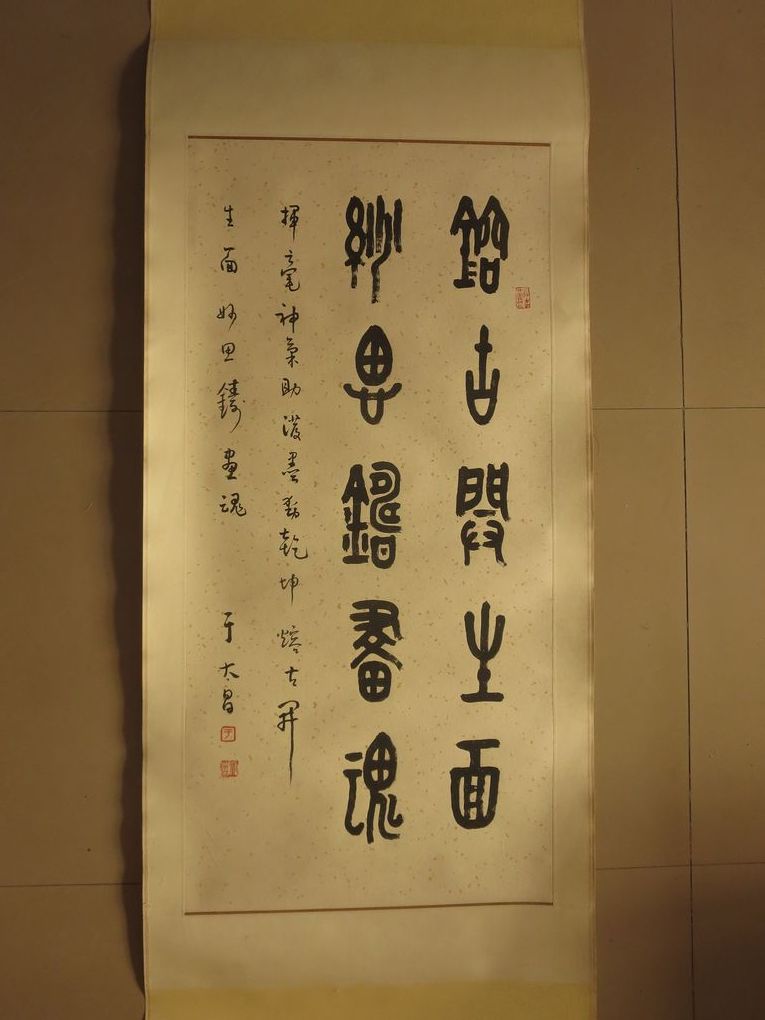 鎔古開生面
妙思鑄畫魂
揮毫神氣助潑墨動乾坤熔古開
生面妙思鑄畫魂
于大昌